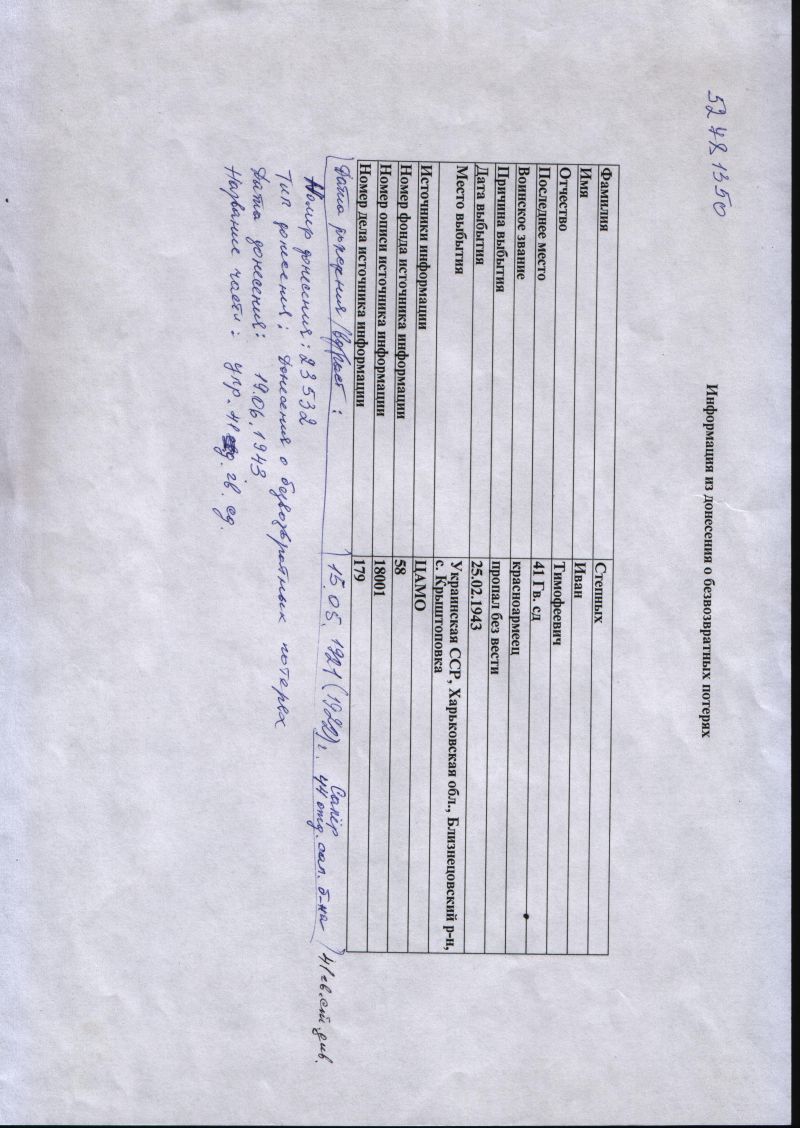 52481350
Информация из донесения о безвозвратных потерях
Фамилия Степных
Имя Иван
Отчество Тимофеевич
Последнее место 41 Гв. сд
Воинское звание красноармеец
Причина выбытия пропал без вести
Дата выбытия 25.02.1943
Место выбытия Украинская ССР, Харьковская обл., Близнецовский р-н,
с. Крыштоповка
Источники информации ЦАМО
Номер фонда источника информации 58
Номер описи источника информации 18001
Номер дела источника информации 179
Дата рождения/Возраст: 15.05.1921 (1922) г. Сапёр
44 отд. сап. б-на 41 гв. стр. див.
Номер донесения: 23532
Тип донесения: Донесения о безвозвратных потерях
Дата донесения: 19.06.1943
Название части: упр. 41 гв. сд.